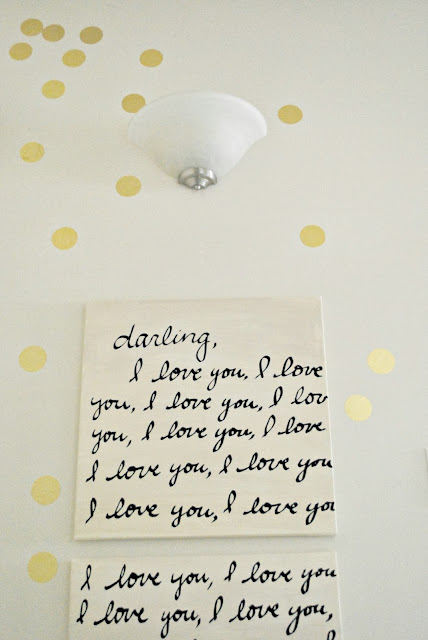 darling,
I love you, I love
you, I love you, I lov
you, I love you, I love
I love you, I love you
I love you, I love yo
I love you, I love you
I love you, I love you,